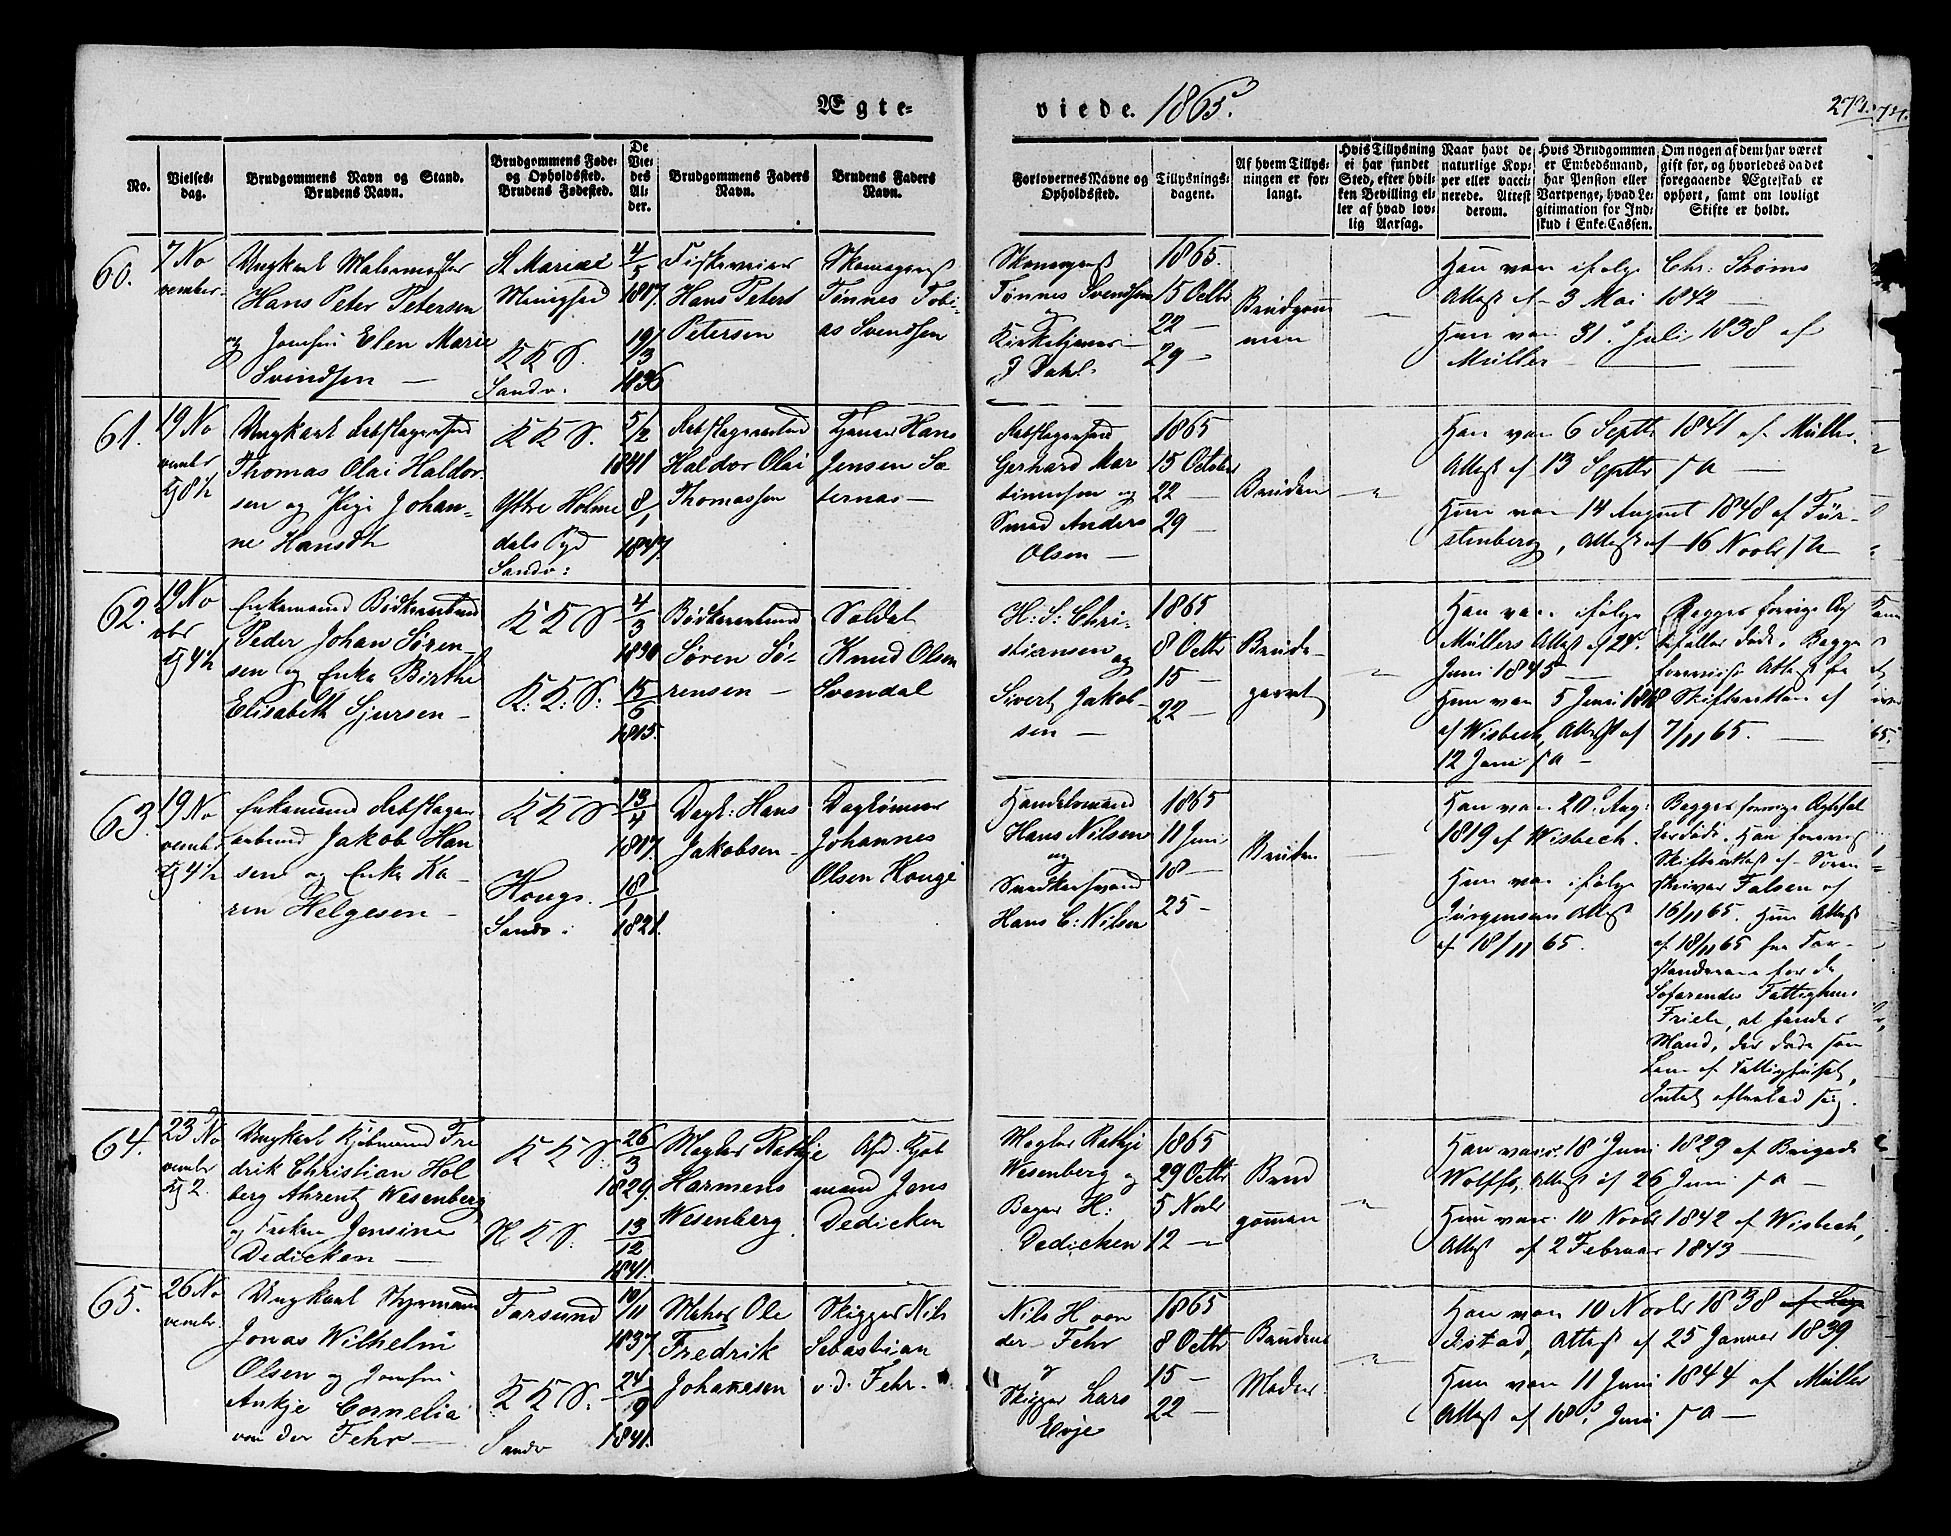 Ægte-
viede. 1865.
273.
74.
No.
Vielses-
dag.
Brudgommens Navn og Stand.
Brudens Navn.
Brudgommens Føde-
og Opholdssted.
Brudens Fødested.
De
Vie-
des
Al-
der.
Brudgommens Faders
Navn.
Brudens Faders
Navn.
Forlovernes Navne og
Opholdssted.
Tillysnings-
dagene.
Af hvem Tillys-
ningen er for-
langt.
Hvis Tillysning
ei har fundet
Sted, efter hvil-
ken Bevilling el-
ler af hvad lov-
lig Aarsag.
Naar havt de
naturlige Kop-
per eller vacci-
nerede. Attest
derom.
Hvis Brudgommen
er Embedsmand,
har Pension eller
Vartpenge, hvad Le-
gitimation for Ind-
skud i Enke-Cassen.
Om nogen af dem har været
gift før, og hvorledes da det
foregaaende Ægteskab er
ophørt, samt om lovligt
Skifte er holdt.
60.
7 No
vember.
Ungkarl Malermester
Hans Peter Petersen
og Jomfru Elen Marie
Svendsen —
St Mariæ
Menighed
K K S.
Sandv:
4/5
1807.
19/3
1836
Hans Peter
Petersen
Skomagers
Tønnes Tobi-
as Svendsen
Tønnes Svendsen
og
Kirketjener
J Dahl.
1865.
15 Octbr
22 —
29 —
Brudgom
men
Han var ifølge Chr: Støms
Attest af 3 Mai 1842 —
Hun var 31. Juli 1838 af
Müller —
61.
19 No
vembr
Kl 8½
Ungkarl Rebslagersvend
Thomas Olai Haldor-
sen og Pige Johan-
ne Hansdtr
K K S.
Ystre Holme
dals Pgd
Sandv:
5/2
1841
8/1
1847.
Rebslagersvend
Haldor Olai
Thomassen
Tjener Hans
Jensen Sæ-
ternæs —
Rebslagersvend
Gerhard Mar
tinussen og
Smed Anders
Olsen —
1865
15 October
22 —
29 —
Bruden
Han var 6 Septbr 1841 af Müller,
Attest af 13 Septbr s A —
Hun var 14 August 1848 af Für-
stenberg, Attest af 16 Novbr s A —
62.
19 No
vbr
Kl 4½
Enkemand Bødkersvend
Peder Johan Søren-
sen og Enke Birthe
Elisabeth Sjursen —
K K S
K: K: S:
4/3
15/6
1815.
Bødkersvend
Søren Sø-
rensen —
Soldat
Knud Olsen
Svendal
H: S: Chri-
stiansen og
Sivert Jakob-
sen —
1865.
8 Octbr
15 —
22 —
Brude-
parret
Han var ifølge
Müllers Attest af 24
Juni 1845 —
Hun var 5 Juni 1818
af Wisbech, Attest af
12 Juni s A —
Begges forrige Æg
tefæller døde. Begge
foreviste Attest fra
Skifteretten af
7/11 65. —
63.
19 No
vembr
Kl 4½
Enkemand Rebslager
svend Jakob Han
sen og Enke Ka-
ren Helgesen —
K K S
Hougs.
Sandv:
13/4
1817.
18/1
1821.
Dagk: Hans
Jakobsen —
Daglønner
Johannes
Olsen Houge
Handelsmand
Hans Nilsen
og
Snedkersvend
Hans C: Nilsen
1865
11 Juni
18 —
25 —
Bruden
Han var 20. Aug.
1819 af Wisbech.
Hun var ifølge
Jürgensens Attest
af 18/11 65.
Begges forrige Ægtefæl
ler døde. Han foreviste
Skifteattest af Soren
skriver Falsen af
16/11 65. Hun Attest
af 18/11 65 fra For-
standeren for de
Søfarendes Fattighus
Friele, at hendes
Mand, der døde som
Lem af Fattighuset,
Intet efterlod sig.
64.
23 No
vembr
Kl 2.
Ungkarl Kjøbmand Fre
drik Christian Hol
berg Ahrentz Wesenberg
og Frøken Jensine
Dedicken —
K K S.
N. K S.
26/3
1829.
13/12
1841.
Mægler Rathje
Harmens
Wesenberg.
Afd. Kjøb
mand Jens
Dedicken
Mægler Rathje
Wesenberg og
Bager H:
Dedicken
1865
29 Octbr
5 Novbr
12 —
Brud
gommen
Han var 18 Juni 1829 af Brigade
Wolff, Attest af 26 Juni s A —
Hun var 10 Novbr 1842 af Wisbech,
Attest af 2 Februar 1843 —
65.
26 No
vembr.
Ungkarl Styrmand
Jonas Wilhelm
Olsen og Jomfru
Ankje Cornelia
von der Fehr —
Farsund
K K S.
Sandv
10/11
1837.
24/9
1841.
Ole
Fredrik
Johannesen
Skipper Nils
Sebastian
v. d. Fehr.
Nils H von
der Fehr
og
Skipper Lars
Evje
1865
8 Octbr
15 —
22 —
Brudens
Moder
Han var 10 Novbr 1838
Attest af 25 Januar 1839
Hun var 11 Juni 1844 af Müller
Attest af 18. Juni s A —